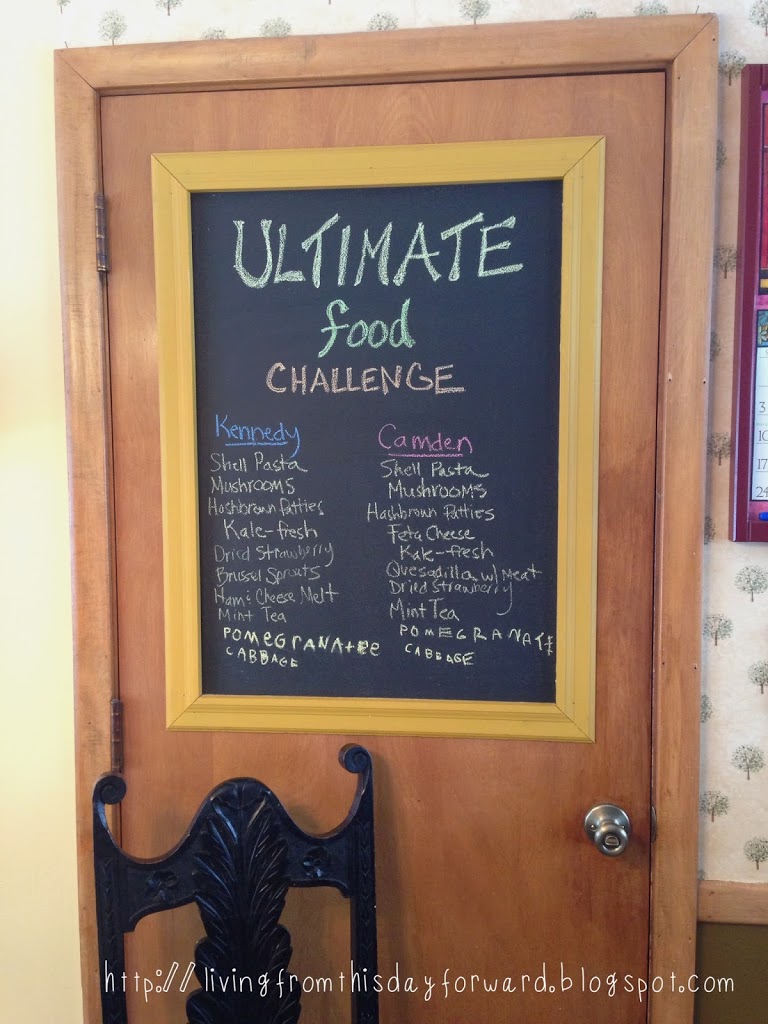 ULTIMATE
food
CHALLENGE
Kennedy
Shell Pasta
Mushrooms
Hashbrown Patties
Kale-fresh
Dried Strawberry
Brussel Sprouts
Ham & Cheese Melt
Mint Tea
POMEGRANATEE
CABBAGE
Camden
Shell Pasta
Mushrooms
Hashbrown Patties
Feta Cheese
Kale-fresh
Quesadilla w/ Meat
Dried Strawberry
Mint Tea
POMEGRANATE
CABBAGE
3
10
17
24
http://livingfromthisdayforward.blogspot.com